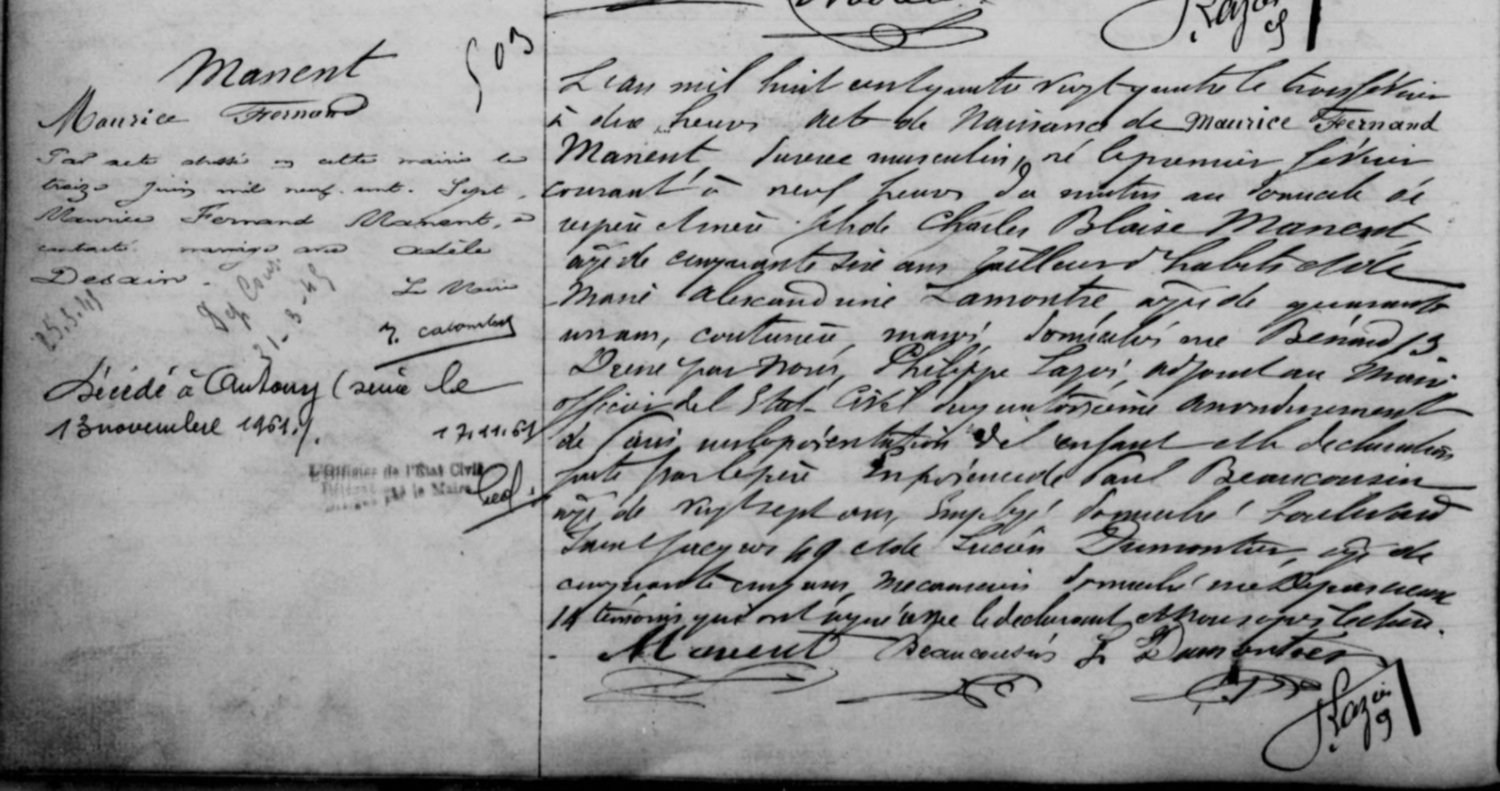 503
Manent
Maurice Fernand
Par acte dressé en cette mairie le
treize juin mil neuf cent sept,
Maurice Fernand Manent, a
contracté mariage avec Adèle
Desain.
Le Maire
25.3.45
31-3-45
Décédé à Antony (Seine) le
13 novembre 1961./.
17.11.61
L'Officier de l'État Civil
Délégué par le Maire
L'an mil huit cent quatre vingt quatre le trois février
à dix heures Acte de Naissance de Maurice Fernand
Manent du sexe masculin, né le premier février
courant à neuf heures du matin au domicile de
ses père et mère fils de Charles Blaise Manent,
âgé de cinquante six ans Tailleur d'habits et de
Marie Alexandrine Lamontre âgée de quarante
un ans, couturière, mariés, domiciliés rue Bénard 13.
Dressé par Nous, Philippe adjoint au Maire
officier de l'Etat-Civil du quatorzième arrondissement
de Paris sur la présentation de l'enfant et la déclaration
faite par le père En présence de Paul Beaucousin
âgé de vingt sept ans, Employé domicilié boulevard
Saint Jacques 49 et de Lucien Dumontier, âgé de
cinquante cinq ans, mécanicien domicilié rue Deparcieux
14 témoins qui ont signé avec le déclarant et Nous après lecture.
Manent Beaucousin L Dumontier